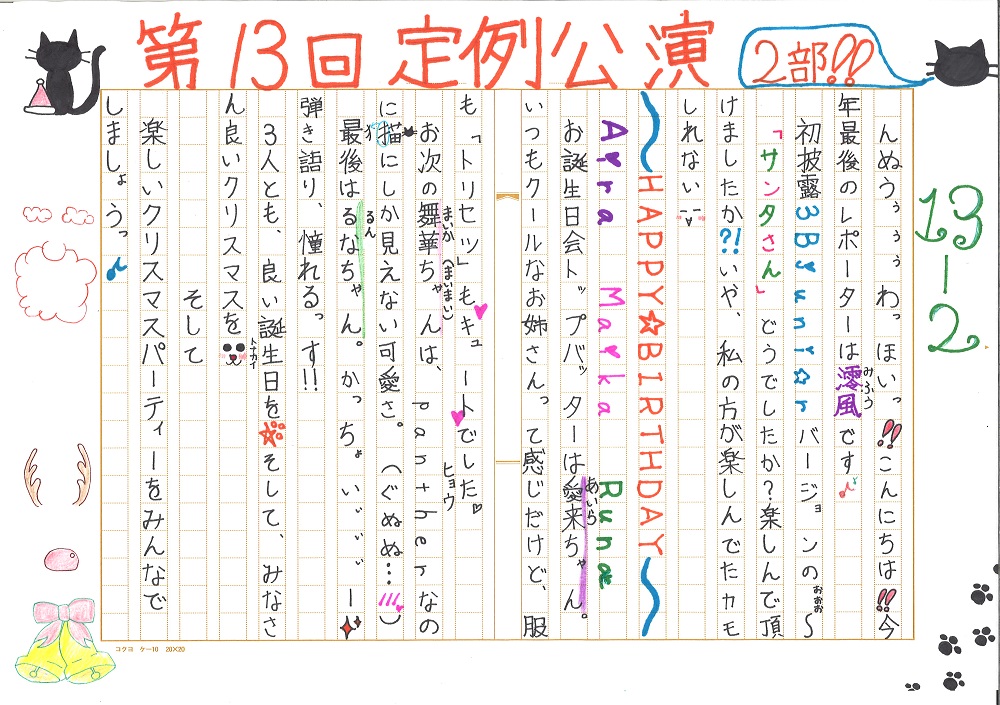 第13回定例公演 2部!!
13-2
んぬうぅぅぅわっほいっ!!こんにちは!!今
年最後のレポーターは澪風です♪
みふう
初披露3BJunior バージョンの
おぉお~
「サンタさん」どうでしたか?楽しんで頂
けましたか?!いや、私の方が楽しんでたカモ
しれない
~HAPPY☆BIRTHDAY~
Ayra Marka Runa
お誕生日会トップバッターは愛来ちゃん。
あいら
いつもクールなお姉さんって感じだけど、服
も「トリセツ」もキュートでした♡
お次の舞華ちゃんは、pantherなの
まいか(まいまい)
ヒョウ
に猫にしか見えない可愛さ。(ぐぬぬ…)
最後はるなちゃん。かっちょいいぃぃー
るん
弾き語り、憧れるっす!!
3人とも、良い誕生日をそして、みなさ
ん良いクリスマスを
トナカイ
そして
楽しいクリスマスパーティーをみんなで
しましょうっ♪
コクヨ ケー10 20×20